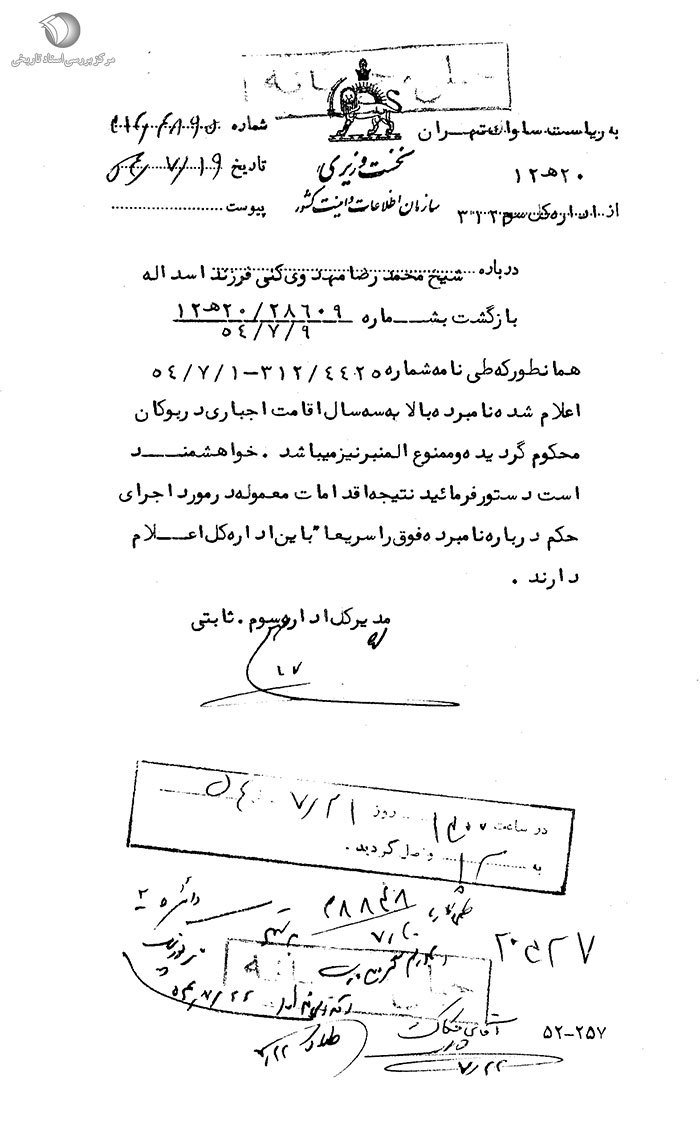 مرکز بررسی اسناد تاریخی
به ریاست ساواک تهران
۲۰ هـ ۱۲
از اداره کل سوم ۳۱۲
نخست وزیری
سازمان اطلاعات و امنیت کشور
شماره
تاریخ ۵۴/۷/۱۹
پیوست
درباره شیخ محمد رضا مهدوی کنی فرزند اسداله
بازگشت بشماره ۲۸۶۰۹/۲۰هـ۱۲
۵۴/۷/۹
همانطورکه طی نامه شماره ۳۱۲/۴۴۲۵-۵۴/۷/۱
اعلام شده نامبرده بالا به سه سال اقامت اجباری در بوکان
محکوم گردیده و ممنوع المنبر نیز میباشد . خواهشمند
است دستور فرمائید نتیجه اقدامات معموله در مورد اجرای
حکم درباره نامبرده فوق را سریعا" باین اداره کل اعلام
دارند .
مدیرکل اداره سوم . ثابتی
در ساعت روز ۵۴/۷/۲۱
به ۳۱۲ واصل گردید .
دائره ۲
۵۴/۷/۲۲
آقای
۷/۲۲
۵۲-۲۵۷